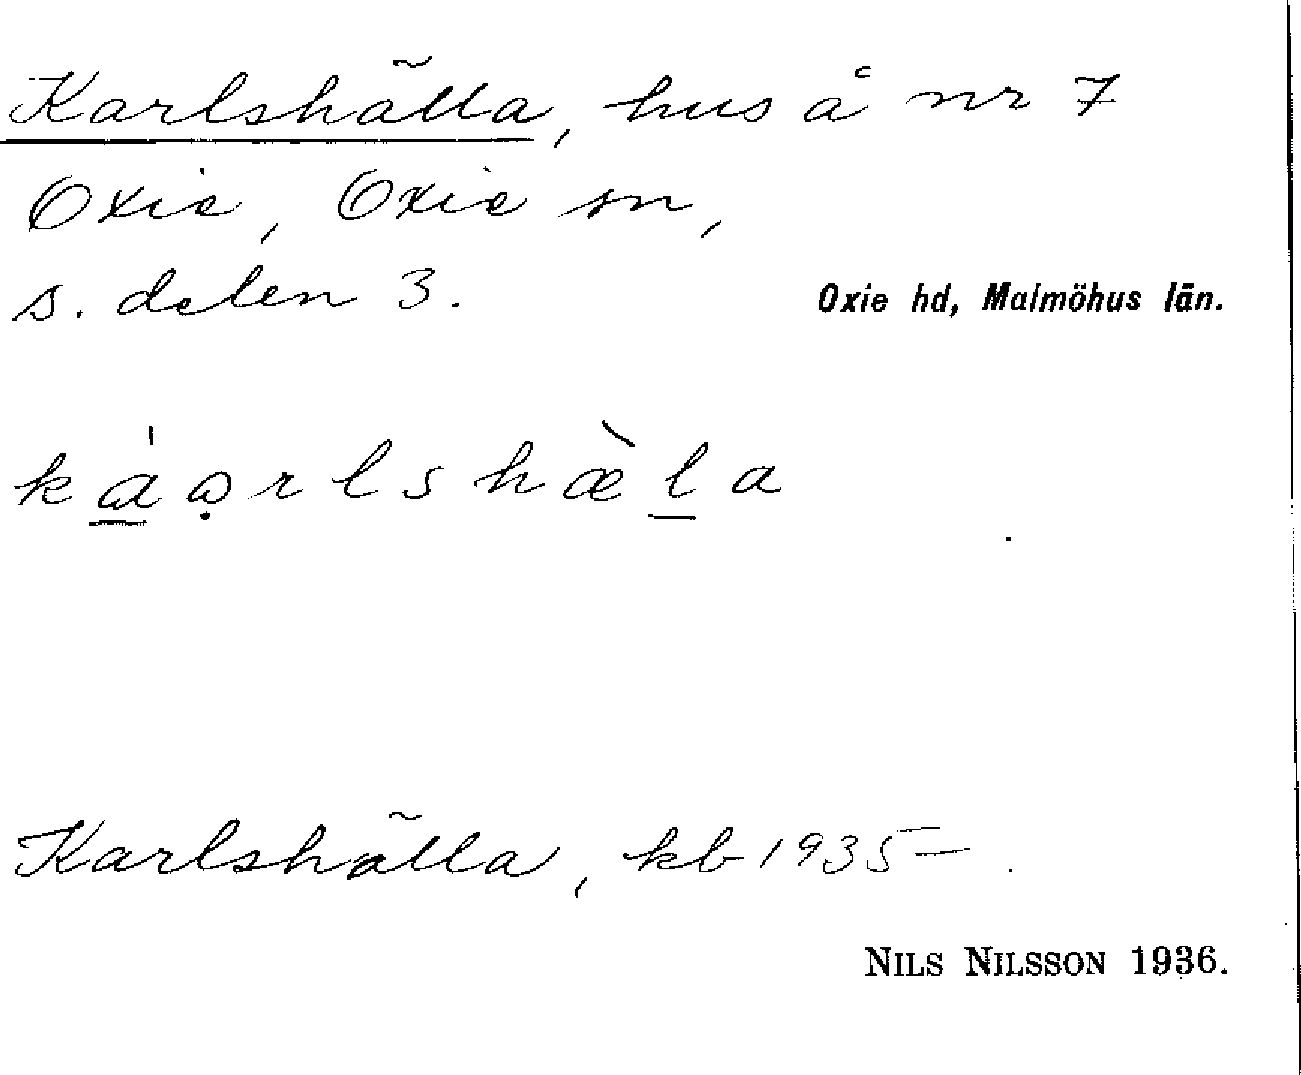 Karlshälla, hus å nr 7
Oxie, Oxie sn,
s. delen 3.
Oxie hd, Malmöhus län.
ká̱ạrlshæ̀ḻa
Karlshälla, kb 1935–.
NILS NILSSON 1936.